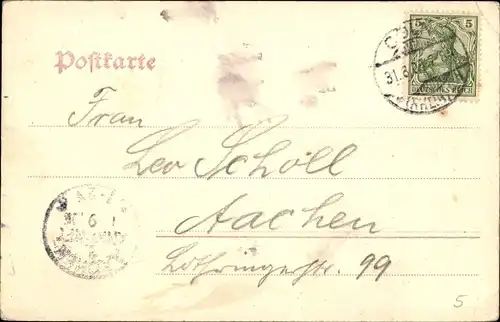 Postkarte
5
DEUTSCHES REICH
31.8.
Frau
Leo Schöll
Aachen
Lothringerstr. 99
5